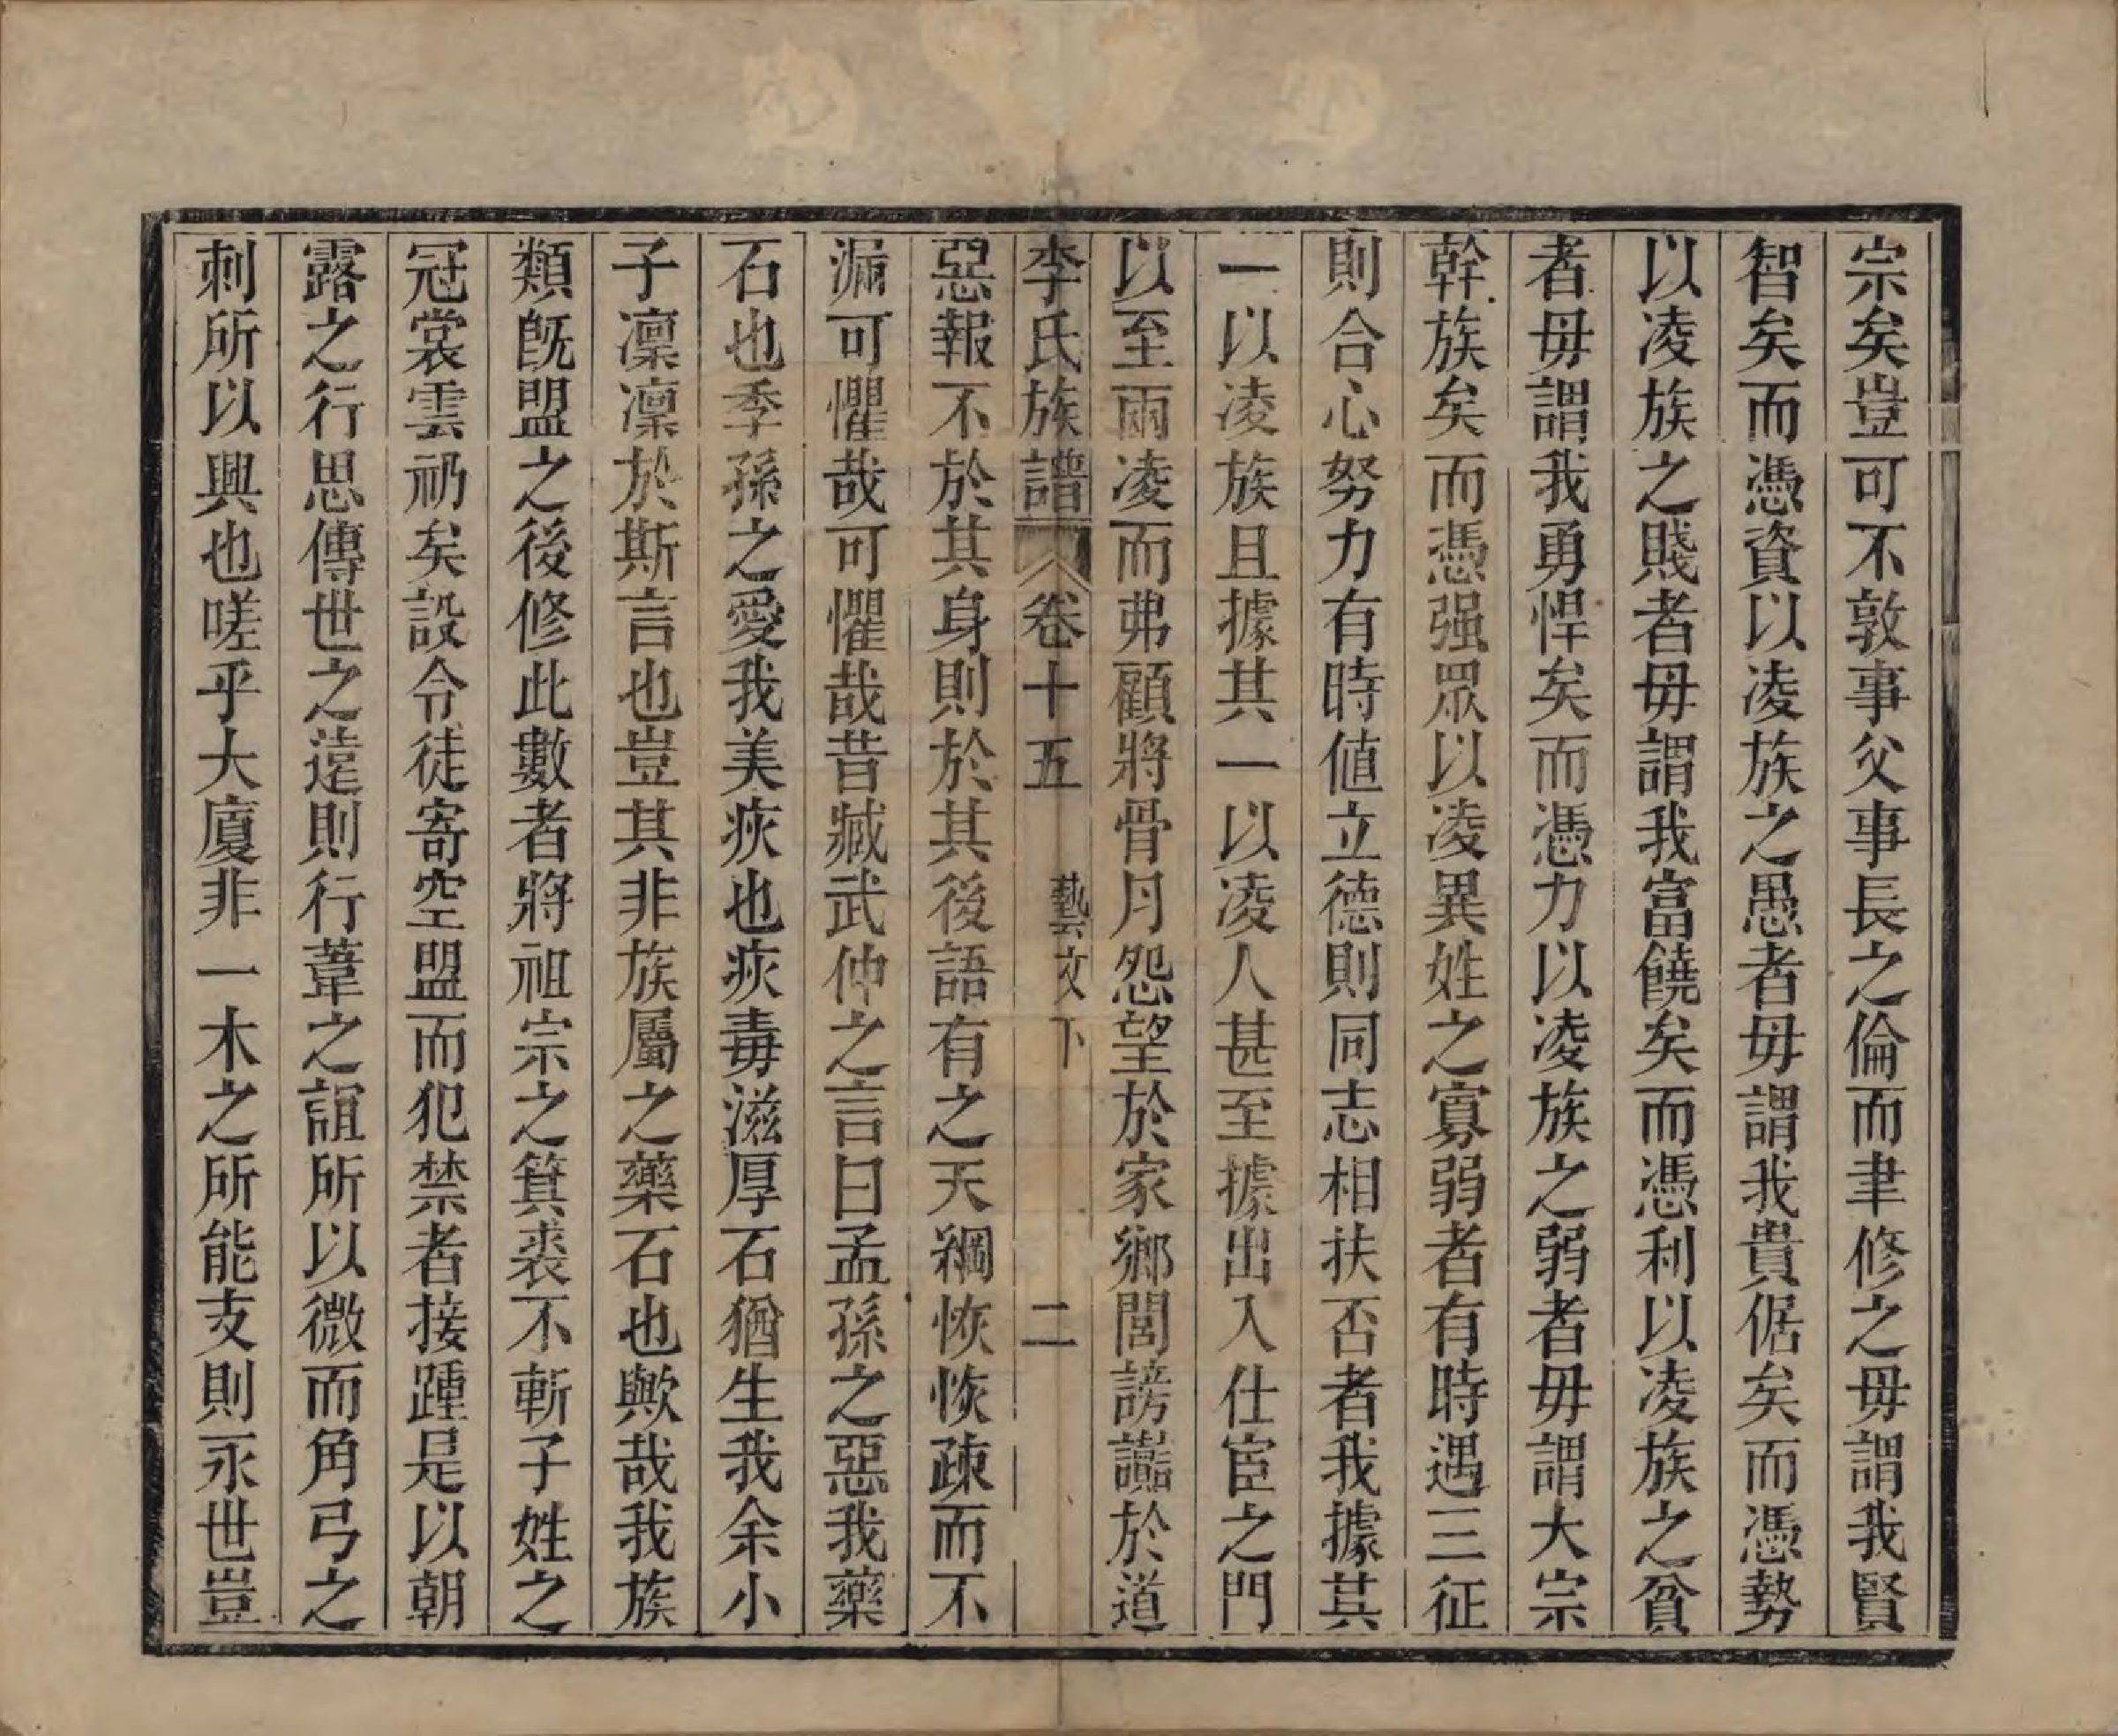 宗矣豈可不敦事父事長之倫而聿修之毋謂我賢
智矣而憑資以凌族之愚者毋謂我貴倨矣而憑勢
以凌族之賤者毋謂我富饒矣而憑利以凌族之貧
者毋謂我勇悍矣而憑力以凌族之弱者毋謂大宗
幹族矣而憑强眾以凌異姓之寡弱者有時遇三征
則合心努力有時値立德則同志相扶否者我據其
一以凌族且據其一以凌人甚至據出入仕宦之門
以至兩凌而弗顧將骨月怨望於家鄉閭謗讟於道
李氏族譜 卷十五 藝文下 二
惡報不於其身則於其後語有之天綱恢恢疎而不
漏可懼哉可懼哉昔臧武仲之言曰孟孫之惡我藥
石也季孫之愛我美疢也疢毒滋厚石猶生我余小
子凜凜於斯言也豈其非族屬之藥石也歟哉我族
類旣盟之後修此數者將祖宗之箕裘不斬子姓之
冠裳雲礽矣設令徒寄空盟而犯禁者接踵是以朝
露之行思傳世之遠則行葦之誼所以微而角弓之
刺所以興也嗟乎大廈非一木之所能支則永世豈